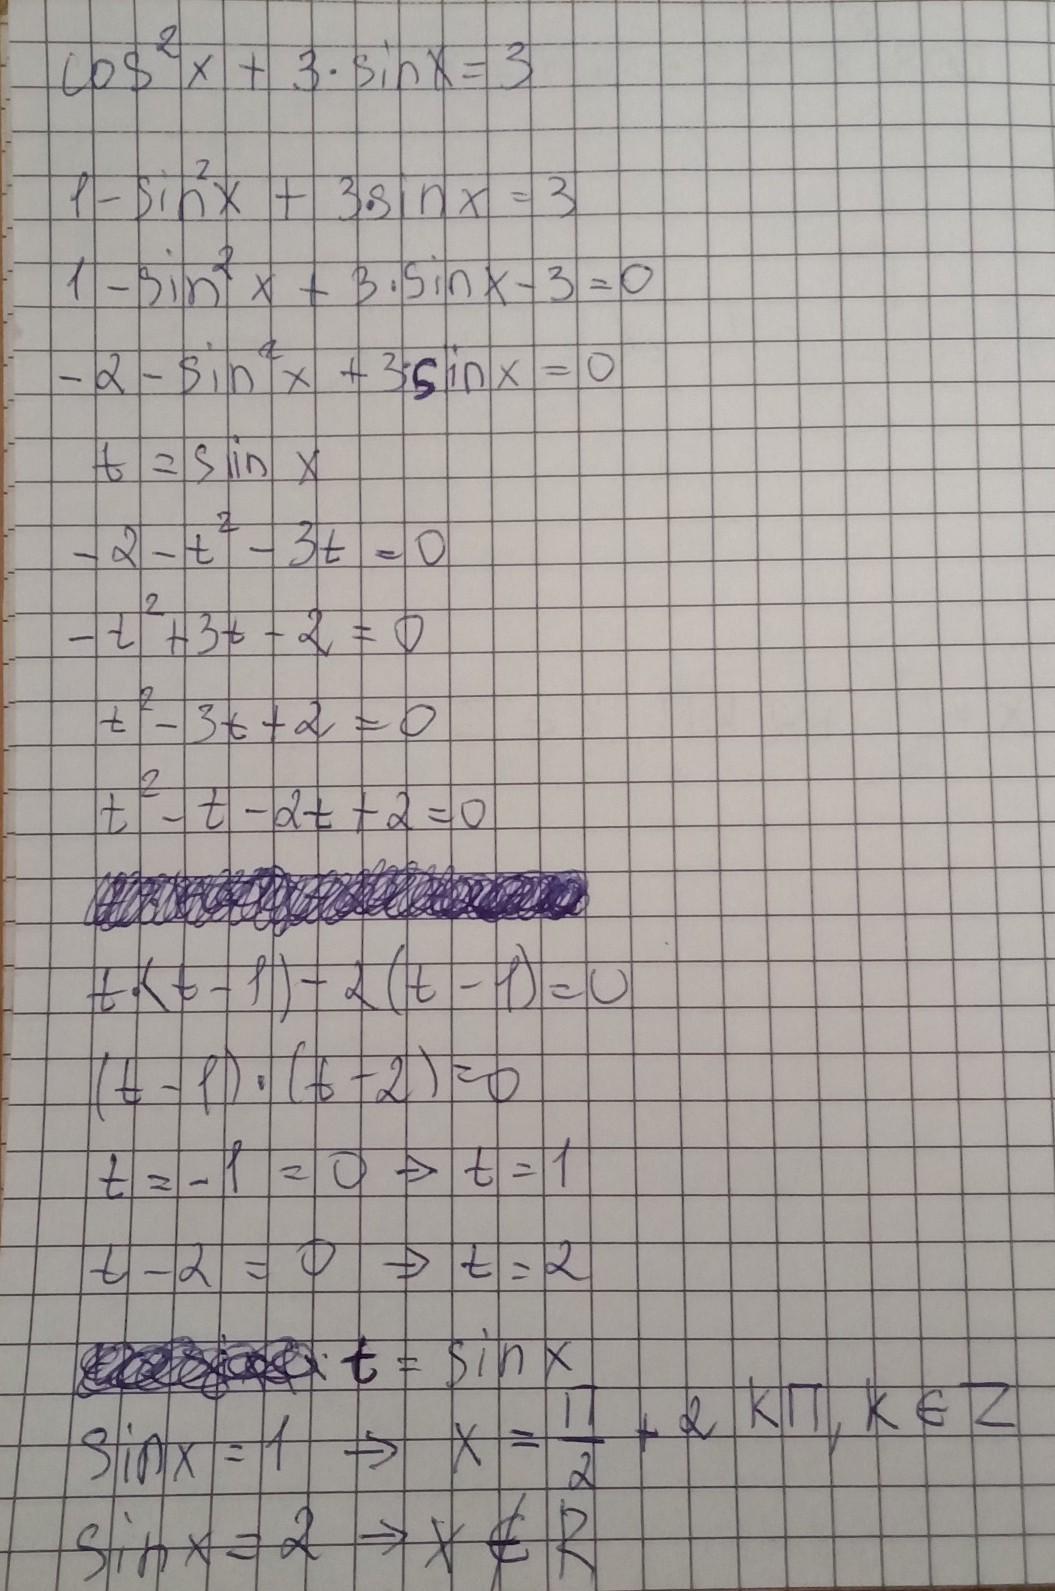 cos²x + 3·sinx = 3
1 - sin²x + 3·sinx = 3
1 - sin²x + 3·sinx - 3 = 0
-2 - sin²x + 3·sinx = 0
t = sin x
-2 - t² - 3t = 0
-t² + 3t - 2 = 0
t² - 3t + 2 = 0
t² - t - 2t + 2 = 0
t·(t - 1) - 2(t - 1) = 0
(t - 1)·(t - 2) = 0
t = -1 = 0 → t = 1
t - 2 = 0 → t = 2
t = sin x
sinx = 1 → x = π/2 + 2kπ, k ∈ Z
sinx = 2 → x ∉ R